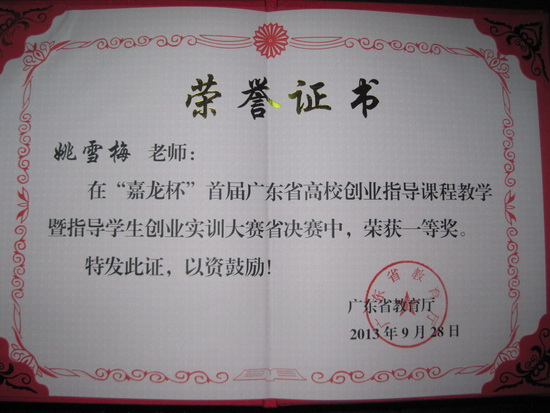 荣誉证书
姚雪梅 老师：
在“嘉龙杯”首届广东省高校创业指导课程教学
暨指导学生创业实训大赛省决赛中，荣获一等奖。
特发此证，以资鼓励！
广东省教育厅
广东省教育厅
2013年9月28日